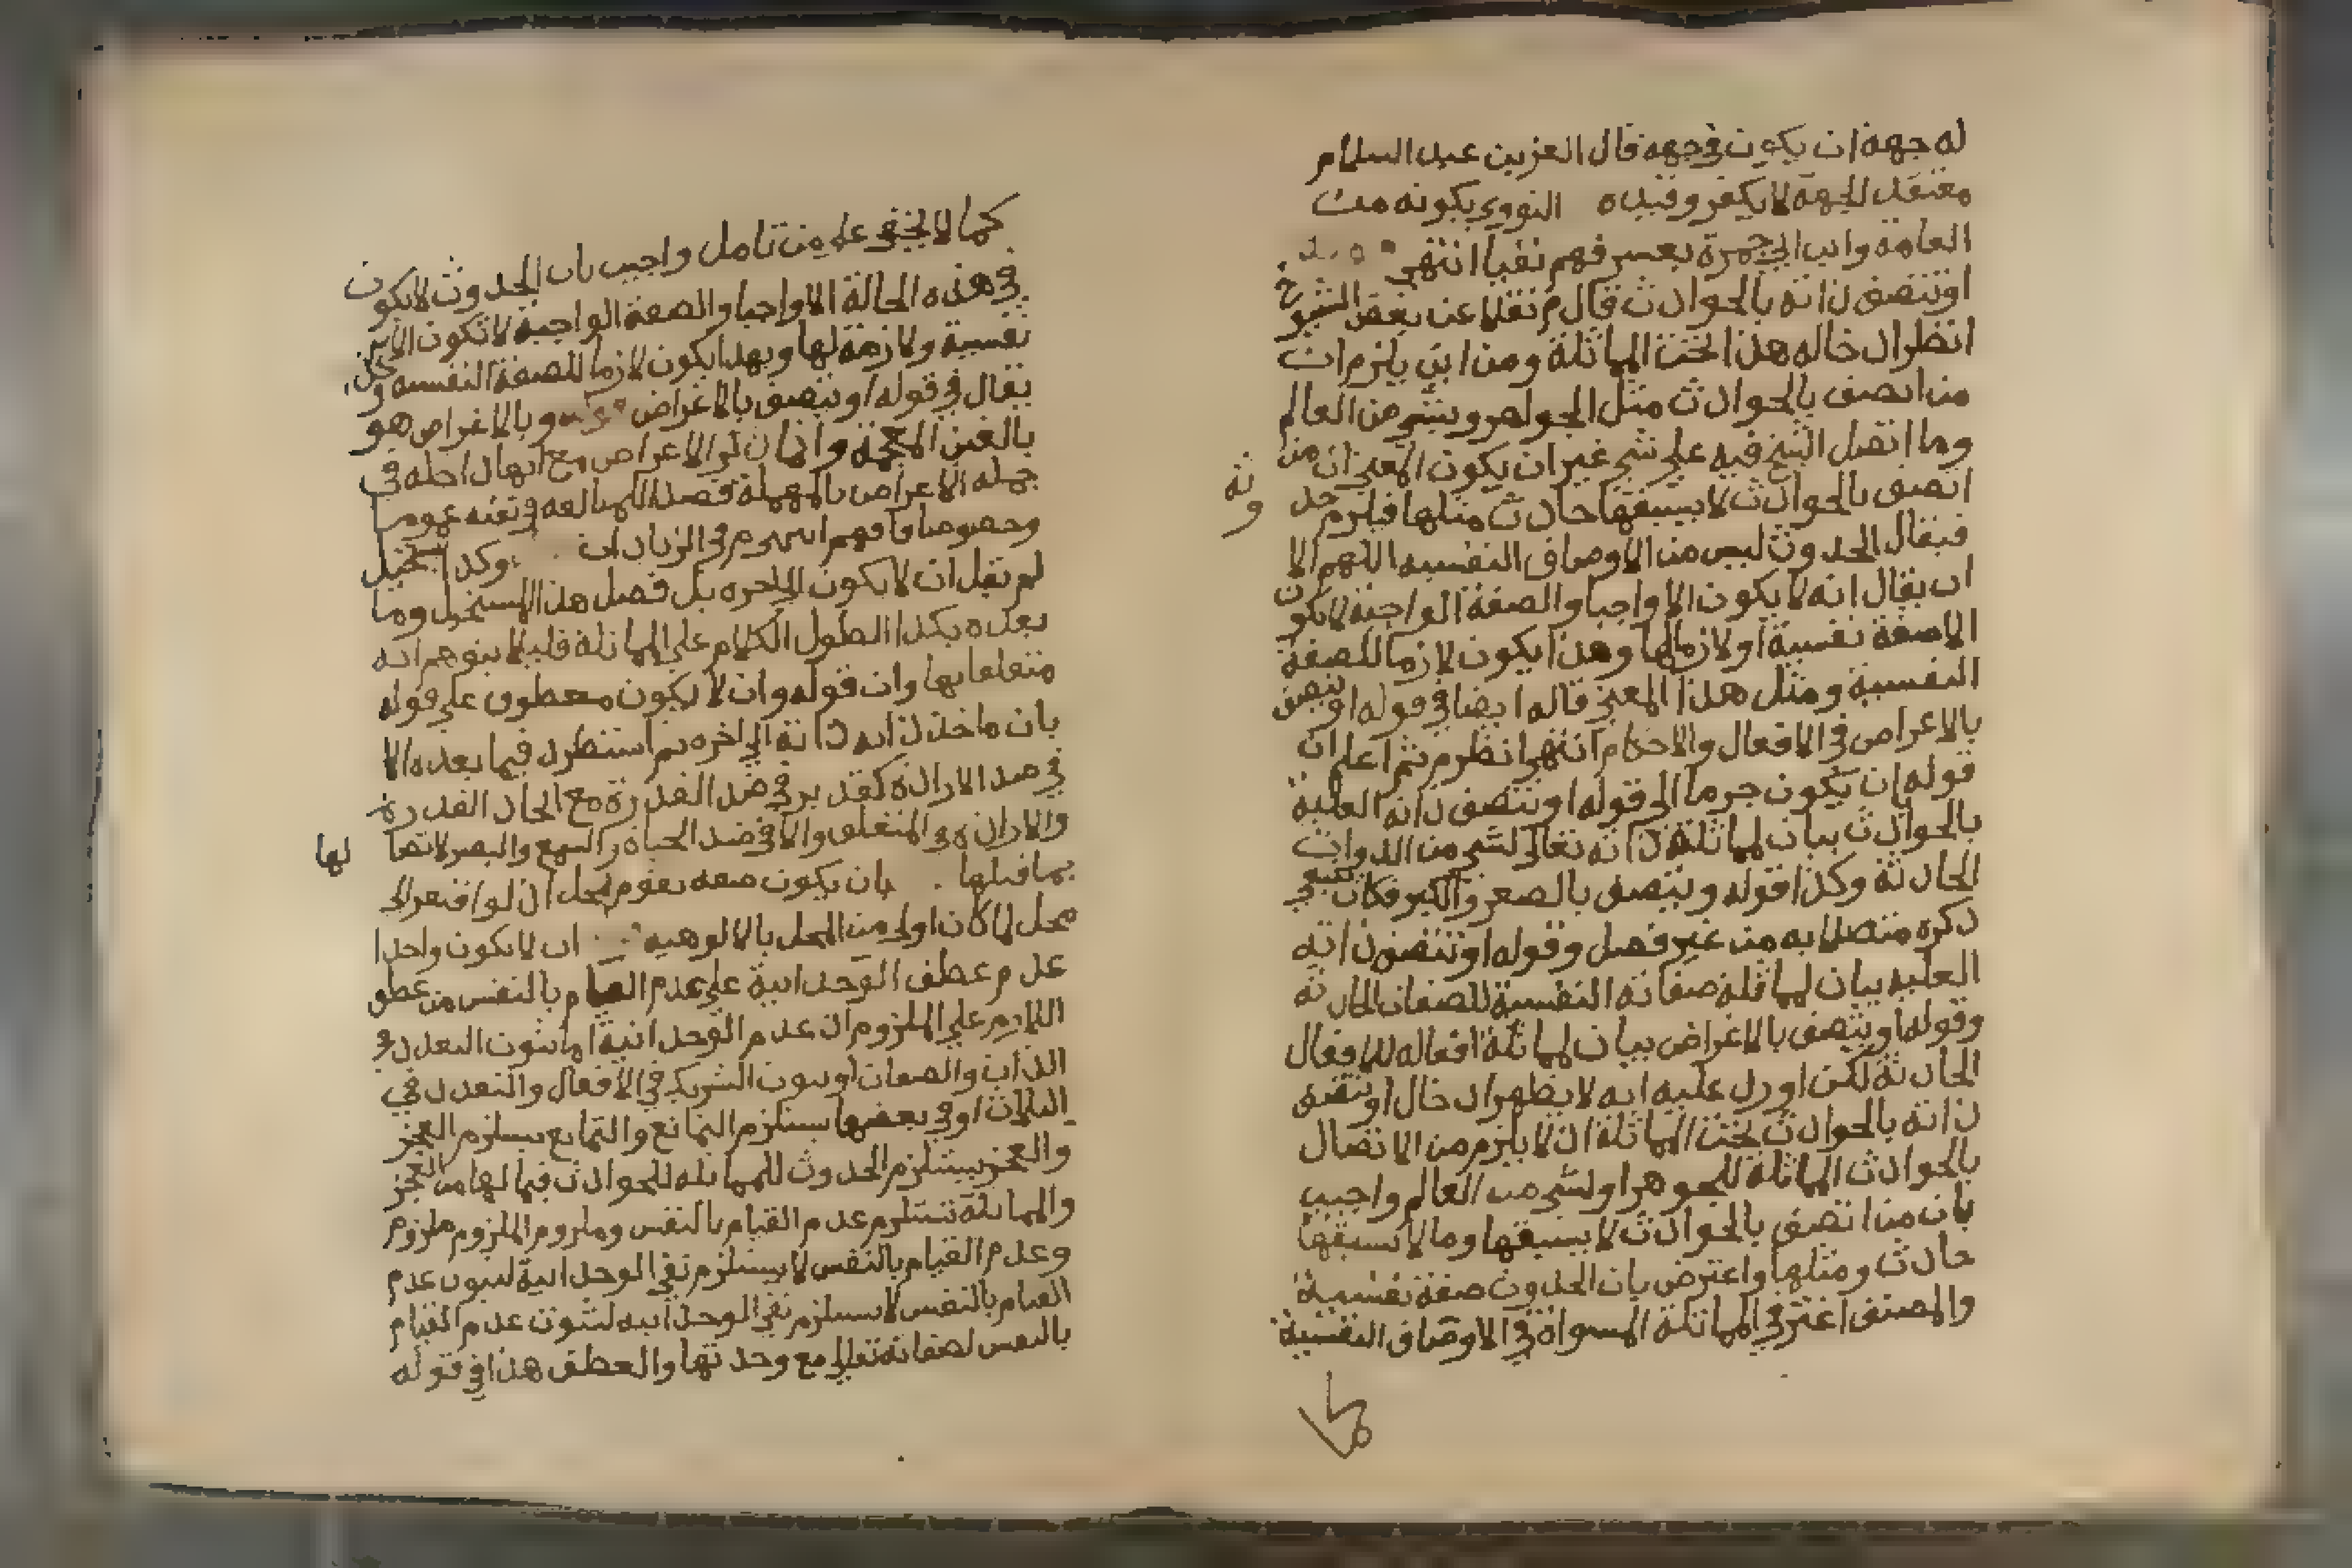 له جهة ان يكون في جهة قال العز بن عبد السلام
معتقد الجهة لا يكفر وقيده النووي بكونه من
العامة وابن ابي جمرة بعسر فهم نفيها انتهى
او تتصف ذاته بالحوادث قال م نقلا عن بعض الشيوخ
انظر ادخاله هذا تحت المماثلة ومن اين يلزم ان
من اتصف بالحوادث مثل الجواهر وبشيء من العالم
وما انفصل الشيخ فيه على شيء غير ان يكون المعنى ان من
اتصف بالحوادث لا يسبقها حادث مثلها فيلزم حد
وثه
فيقال الحدوث ليس من الاوصاف النفسيه اللهم الا
ان يقال انه لا يكون الا واجبا والصفة الواجبة لا تكون
الا صفة نفسية او لازما لها وهذا يكون لازما للصفة
النفسية ومثل هذا المعنى قاله ايضا في قوله او يتصف
بالاعراض في الافعال والاحكام انتهى انظر م ثم اعلم ان
قوله ان يكون جرما الى قوله او تتصف ذاته العلية
بالحوادث بيان لمماثلة ذاته تعالى لشيء من الذوات
الحادثة وكذا قوله ويتصف بالصغر والكبر فكان ينبغي
ذكره متصلا به من غير فصل وقوله او تتصف ذاته
العليه بيان لمماثلة صفاته النفسية للصفات الحادثه
وقوله او يتصف بالاغراض بيان لمماثلة افعاله للافعال
الحادثة لكن اورد عليه انه لا يظهر ادخال او تتصف
ذاته بالحوادث تحت المماثلة اذ لا يلزم من الاتصال
بالحوادث المماثلة للجوهر او لشيء من العالم واجيب
بان من اتصف بالحوادث لا يسبقها وما لا يسبقها
حادث ومثلها واعترض بان الحدوث صفة نفسية
والمصنف اعتبر في المماثلة المسواة في الاوصاف النفسية
كما لا يخفى على من تامل واجيب بان الحدوث لا يكون
في هذه الحالة الا واجبا والصفة الواجبة لا تكون الا
نفسية ولازمة لها وبهذا يكون لازما للصفة النفسيه و
يقال في قوله او يتصف بالاغراض وبالاغراض هو
بالغين المعجمة وانما ذكر الاغراض مع انها داخله في
جملة الاعراض بالمهملة قصدا للمبالغه في نفيه عموما
وخصوصا فافهم انتهى م في الزيادات وكذا يستحيل
لم يقل ان لا يكون الى اخره بل فصل هذا المستحيل وما
بعده بكذا الطول الكلام على المماثلة قبله لا يتوهم انه
متعلقا بها وان قوله وان لا يكون معطوف على قوله
بان ماخذ ذاته الى اخره ثم استطرد فيما بعده الا
في ضد الارادة كقدير في ضد القدرة مع اتحاد القدرة
والارادة في المتعلق والا في ضد الحياة والسمع والبصر لاتصا
لها
بما قبلها بان يكون صفة يقوم بمحل اذ لو افتقر الى
محل لما كان اولى من المحل بالالوهيه ان لا يكون واحدا
عدم عطف الوحدانية على عدم القيام بالنفس من عطف
اللازم على الملزوم ان عدم الوحدانية اما ثبوت التعدد في
الذات والصفات او ثبوت الشريك في الافعال والتعدد في
الثلاث او في بعضها يستلزم التمانع والتمانع يستلزم العجز
والعجز يستلزم الحدوث للمماثله للحوادث فيما لها من العجز
والمماثلة تستلزم عدم القيام بالنفس وملزوم الملزوم ملزوم
وعدم القيام بالنفس لا يستلزم نفي الوحدانية لثبوت عدم
القيام بالنفس لا يستلزم نفي الوحدانيه لثبوت عدم القيام
بالنفس لصفاته تعالى مع وحدتها والعطف هذا في قوله